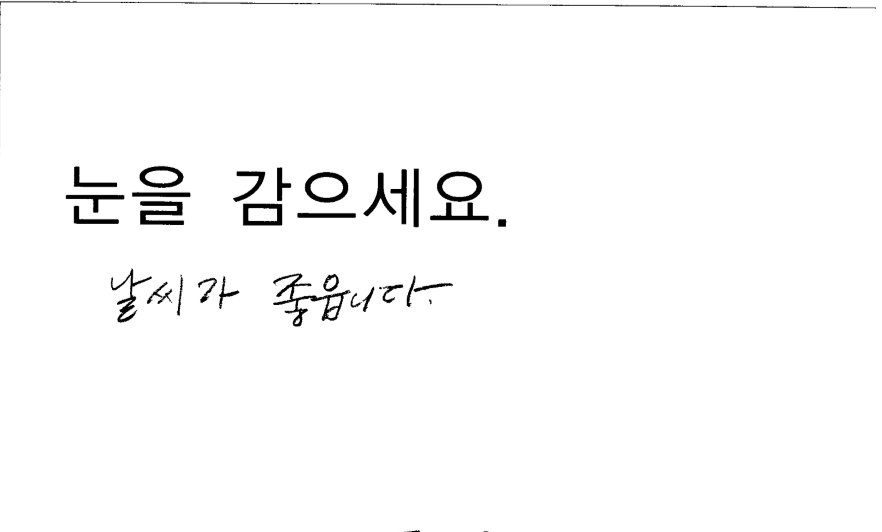 눈을 감으세요.
날씨가 좋읍니다.